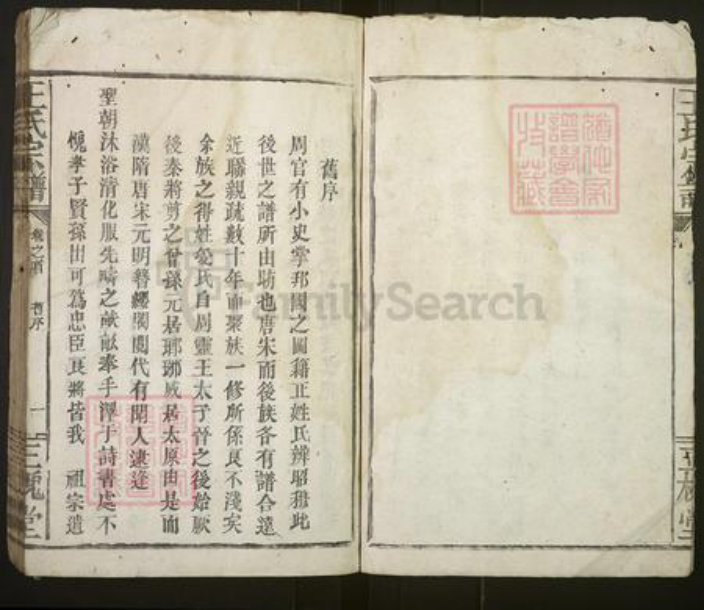 舊序
周官有小史掌邦國之圖籍正姓氏辨昭穆此
後世之譜所由昉也唐宋而後族各有譜合遠
近聯親疏數十年而聚族一修所係良不淺矣
余族之得姓受氏自周靈王太子晉之後始厥
後秦將剪之曾孫元居瑯琊威居太原由是而
漢隋唐宋元明簪纓閥閱代有聞人逮逢
聖朝沐浴清化服先疇之畎畝奉手澤于詩書處不
愧孝子賢孫出可為忠臣良將皆我 祖宗遺
王氏宗譜
卷之首 舊序 一
三槐堂
王氏宗譜
三槐堂
譜學會
收藏
FamilySearch